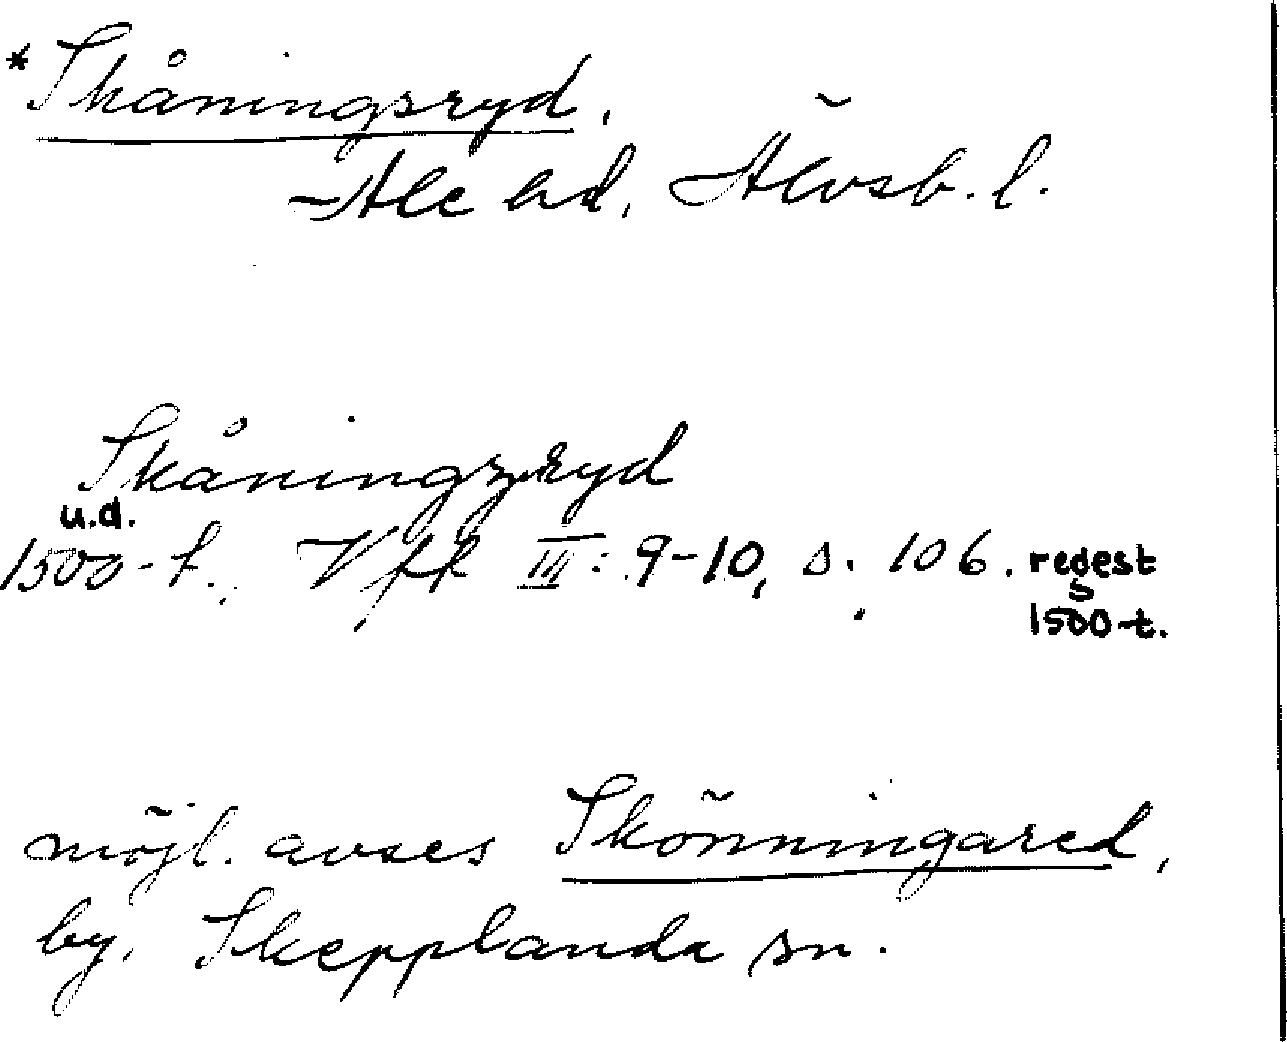 *Skåningsryd.
Ale hd, Älvsb. l.
Skåningzryd
u.d.
1500-t. Vfft III: 9-10, s. 106. regest
1500-t.
möjl. avses Skönningared,
by, Skepplanda sn.